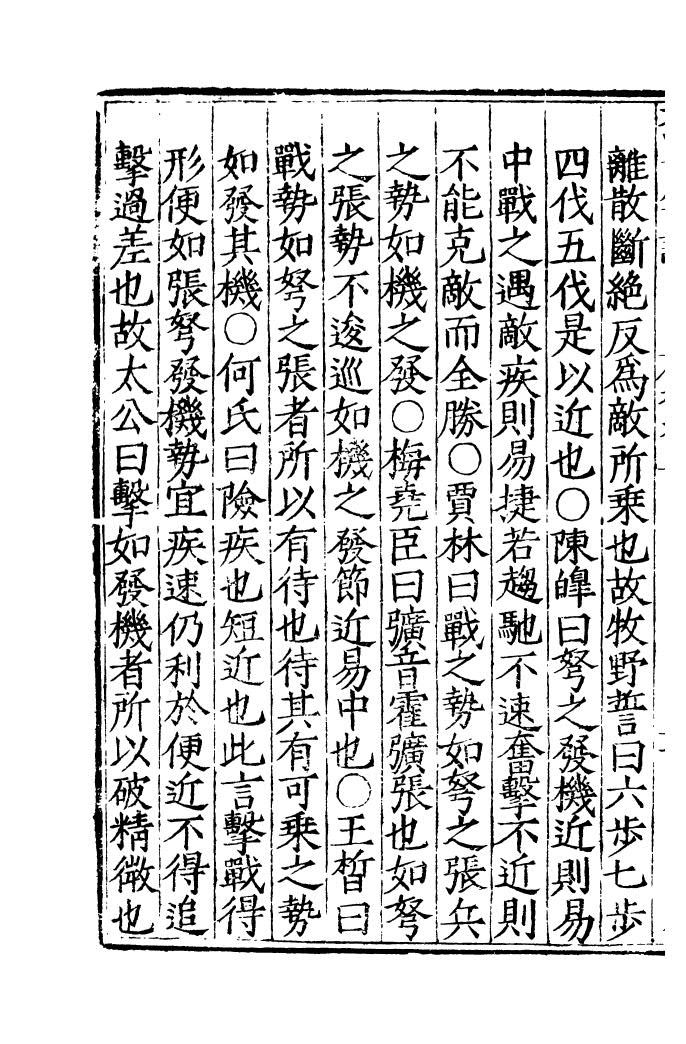 離散斷絕反爲敵所乗也故牧野誓曰六步七步
四伐五伐是以近也〇陳皥曰弩之發機近則易
中戰之遇敵疾則易捷若趨馳不速奮擊不近則
不能克敵而全勝〇賈林曰戰之勢如弩之張兵
之勢如機之發〇梅堯臣曰彍音霍彍張也如弩
之張勢不逡巡如機之發節近易中也〇王晳曰
戰勢如弩之張者所以有待也待其有可乗之勢
如發其機〇何氏曰險疾也短近也此言擊戰得
形便如張弩發機勢宜疾速仍利於便近不得追
擊過差也故太公曰擊如發機者所以破精微也